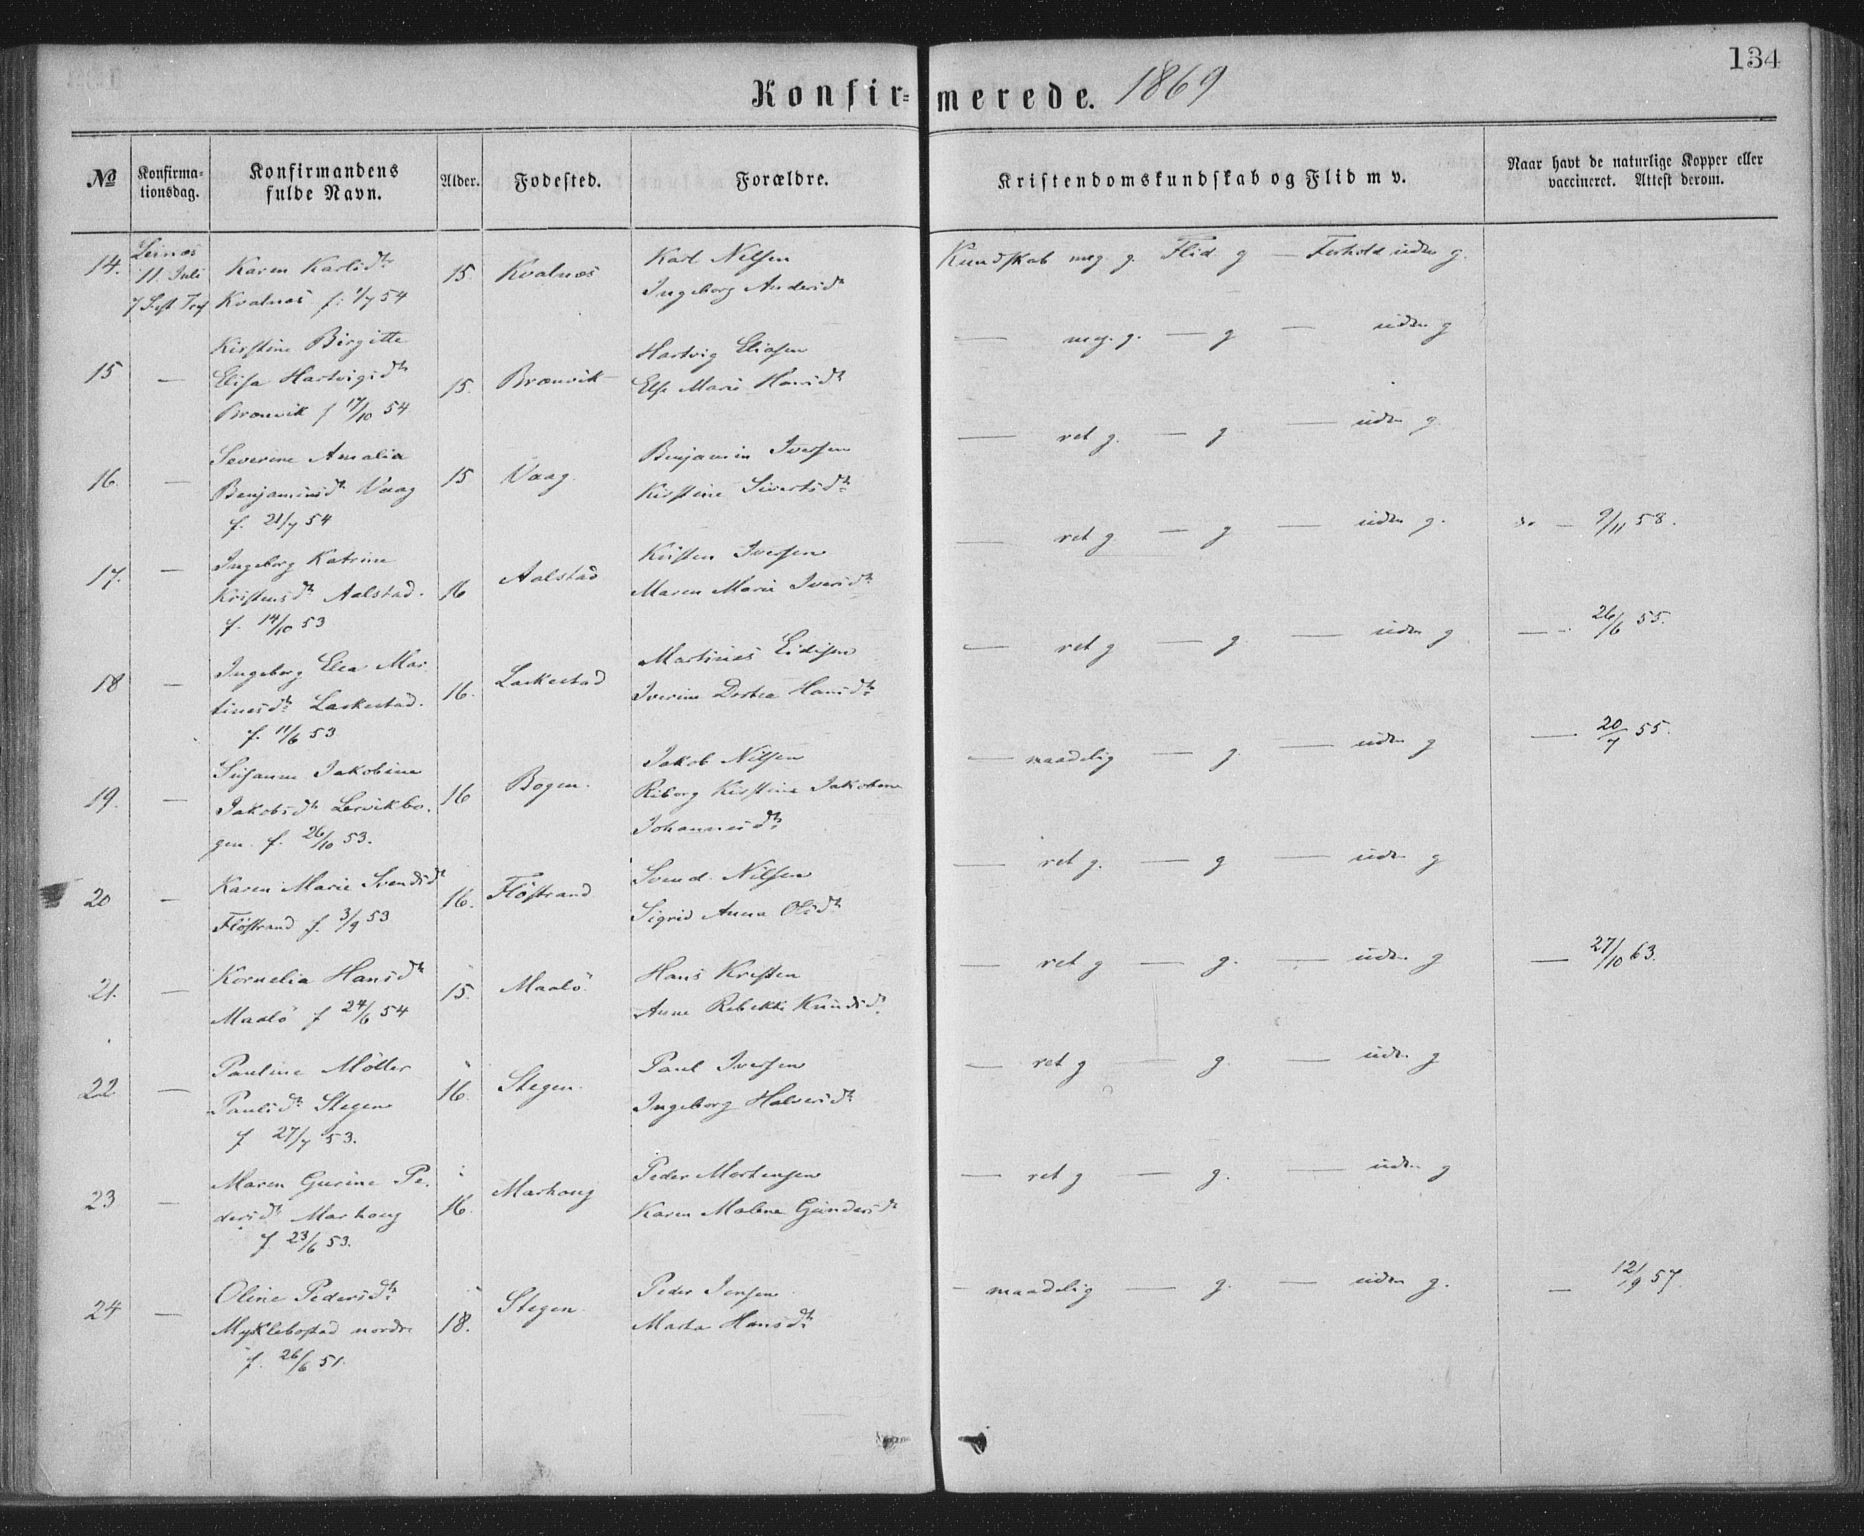 134
Konfir=merede. 1869
No
Konfirma-
tionsdag.
Konfirmandens
fulde Navn.
Alder.
Fodested.
Forældre.
Kristendomskundskab og Flid m v.
Naar havt de naturlige Kopper eller
vaccineret. Attest derom.
14.
Leines
11 Juli
7 Sept
Karen Karlsdtr
Kvalnæs f: 1/7 54
15
Kvalnæs
Karl Nilsen
Ingeborg Andersdtr
Kundskab meg. g. Flid g — Forhold uden g.
15
—
Kirstine Birgitte
Elisa Hartvigsdtr
Brænvik f 17/10 54
15.
Brænvik
Hartvig Eliasen
Else Marie Hansdtr
— meg. g. — g — uden g
16.
—
Severine Amalia
Benjaminsdtr Vaag
f. 21/7 54
15
Vaag.
Benjamin Iversen
Kirstine Sivertsdtr
— ret g. — g. — uden g.
17.
—
Ingeborg Katrine
Kristensdtr Aalstad.
f. 14/10 53
16
Aalstad
Kristen Iversen
Maren Marie Iversdtr
— ret g — g — uden g. do — 9/11 58.
18
—
Ingeborg Elea Mar-
tinusdtr Laskestad.
f. 11/6 53
16.
Laskestad
Martinus Eidisen
Iverine Dortea Hansdtr
— ret g — g. — uden g — 26/6 55.
19.
—
Susanna Jakobine
Jakobsdtr Lervikbo-
gen. f. 26/10 53.
16
Bogen.
Jakob Nilsen
Riborg Kirstine Jakobine
Johannesdtr
— maadelig — g. — uden g — 20/7 55.
20
—
Karen Marie Svendsdtr
Flöstrand f. 3/9 53
16.
Flöstrand
Svend Nilsen
Sigrid Anna Olsdtr
— ret g. — g — uden g
21.
—
Kornelia Hansdtr
Maalö f 24/6 54
15.
Maalö
Hans Kristen
Anne Rebekka Knudsdtr
— ret g — g. — uden g — 27/10 63.
22
—
Pauline Möller
Paulsdtr Stegen
f 27/7 53.
16.
Stegen.
Paul Iversen
Ingeborg Halvorsdtr
— ret g — g. — uden g
23
—
Maren Gurine Pe-
dersdtr Marhaug
f. 23/6 53.
16.
Marhaug
Peder Mortensen
Karen Malene Gundersdtr
— ret g — g. — uden g
24
—
Oline Pedersdtr
Myklebostad nordre
f. 26/6 51.
18.
Stegen
Peder Jensen
Marta Hansdtr
— maadelig — g. — uden g. — 12/9 57.